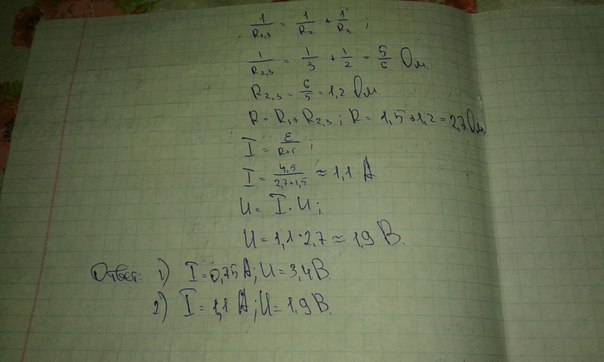 1/R₂,₃ = 1/R₂ + 1/R₃ ;
1/R₂,₃ = 1/3 + 1/2 = 5/6 Ом
R₂,₃ = 6/5 = 1,2 Ом
R = R₁ + R₂,₃ ; R = 1,5 + 1,2 = 2,7 Ом
I = ε/R+r ;
I = 4,5/2,7+1,5 ≈ 1,1 А
U = I · U ;
U = 1,1 · 2,7 ≈ 1,9 В.
Ответ: 1) I = 0,75 А ; U = 3,4 В
2) I = 1,1 А ; U = 1,9 В.